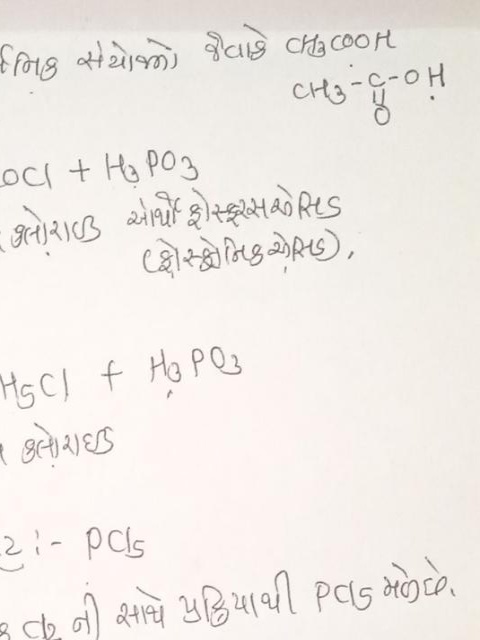 સંયોજનો જેવાકે CH3COOH
CH3-C-OH
O
OCl + H3PO3
ક્લોરાઇડ ઓર્થોફોસ્ફરસએસિડ
(ફોસ્ફોનિકએસિડ),
H5Cl + H3PO3
ક્લોરાઇડ
:- PCl5
Cl2 ની સાથે પ્રક્રિયાથી PCl5 મળેછે.